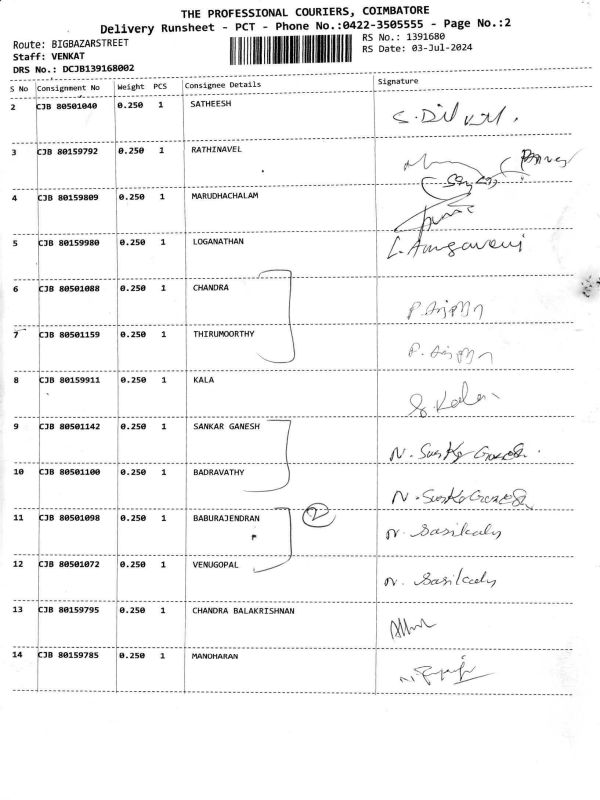 THE PROFESSIONAL COURIERS, COIMBATORE
Delivery Runsheet - PCT - Phone No.:0422-3505555 - Page No.:2
Route: BIGBAZARSTREET RS No.: 1391680
Staff: VENKAT RS Date: 03-Jul-2024
DRS No.: DCJB139168002
S No Consignment No Weight PCS Consignee Details Signature
2 CJB 80501040 0.250 1 SATHEESH
3 CJB 80159792 0.250 1 RATHINAVEL
4 CJB 80159809 0.250 1 MARUDHACHALAM
5 CJB 80159980 0.250 1 LOGANATHAN
6 CJB 80501088 0.250 1 CHANDRA
7 CJB 80501159 0.250 1 THIRUMOORTHY
8 CJB 80159911 0.250 1 KALA
9 CJB 80501142 0.250 1 SANKAR GANESH
10 CJB 80501100 0.250 1 BADRAVATHY
11 CJB 80501098 0.250 1 BABURAJENDRAN 2 N. Sasikaly
12 CJB 80501072 0.250 1 VENUGOPAL N. Sasikaly
13 CJB 80159795 0.250 1 CHANDRA BALAKRISHNAN
14 CJB 80159785 0.250 1 MANOHARAN